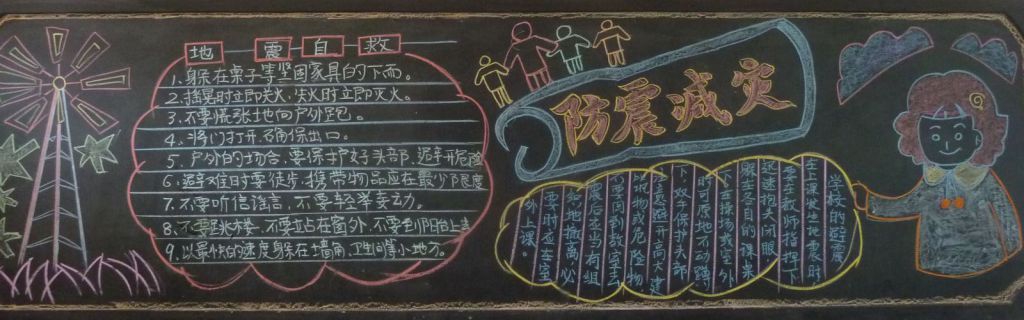 地震自救
1.躲在桌子等坚固家具的下面。
2.摇晃时立即关火,失火时立即灭火。
3.不要慌张地向户外跑。
4.将门打开,确保出口。
5.户外的场合,要保护好头部,避开危险
6.避难时要徒步,携带物品应在最少限度
7.不要听信谣言,不要轻举妄动。
8.不要跳楼,不要站在窗外,不要到阳台上去
9.以最快的速度躲在墙角,卫生间等小地方。
防震减灾
学校的避震
在上课发生地震时
要在教师指挥下
迅速抱头闭眼
躲在各自的课桌
下在操场或室外
时可原地不动蹲
下双手保护头部
注意避开高大建
筑物或危险物
不要回到教室去
震后应当有组
织地撤离必
要时应在室
外上课。